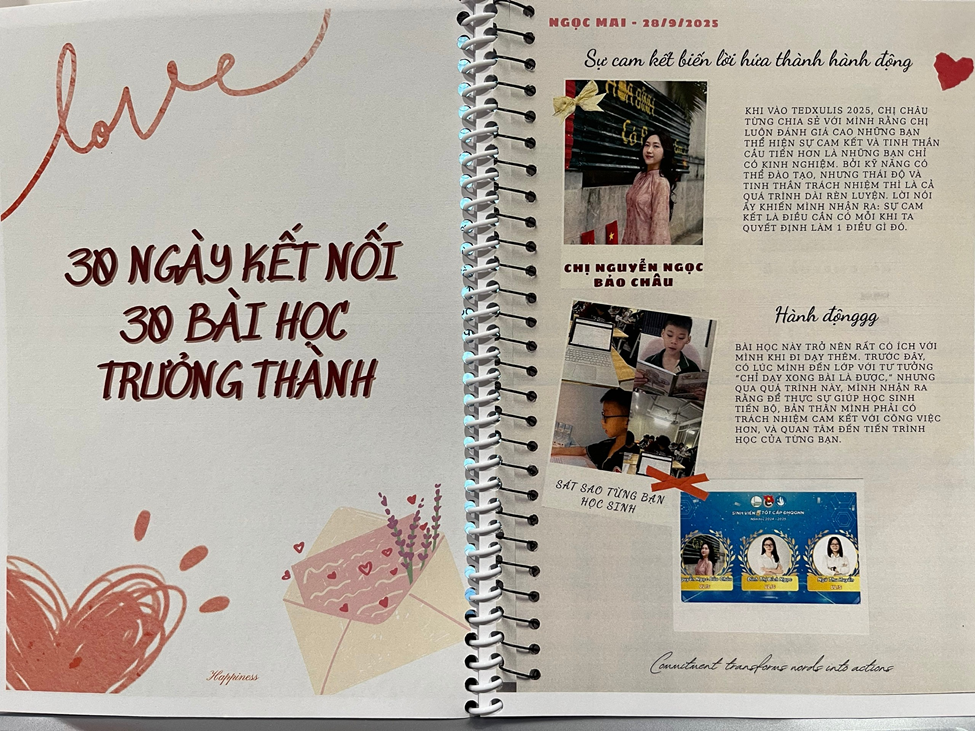 love
30 NGÀY KẾT NỐI
30 BÀI HỌC
TRƯỞNG THÀNH
Happiness
NGỌC MAI - 28/9/2025
Sự cam kết biến lời hứa thành hành động
KHI VÀO TEDXULIS 2025, CHỊ CHÂU
TỪNG CHIA SẺ VỚI MÌNH RẰNG CHỊ
LUÔN ĐÁNH GIÁ CAO NHỮNG BẠN
THỂ HIỆN SỰ CAM KẾT VÀ TINH THẦN
CẦU TIẾN HƠN LÀ NHỮNG BẠN CHỈ
CÓ KINH NGHIỆM. BỞI KỸ NĂNG CÓ
THỂ ĐÀO TẠO, NHƯNG THÁI ĐỘ VÀ
TINH THẦN TRÁCH NHIỆM THÌ LÀ CẢ
QUÁ TRÌNH DÀI RÈN LUYỆN. LỜI NÓI
ẤY KHIẾN MÌNH NHẬN RA: SỰ CAM
KẾT LÀ ĐIỀU CẦN CÓ MỖI KHI TA
QUYẾT ĐỊNH LÀM 1 ĐIỀU GÌ ĐÓ.
CHỊ NGUYỄN NGỌC
BẢO CHÂU
Hành độnggg
BÀI HỌC NÀY TRỞ NÊN RẤT CÓ ÍCH VỚI
MÌNH KHI ĐI DẠY THÊM. TRƯỚC ĐÂY,
CÓ LÚC MÌNH ĐẾN LỚP VỚI TƯ TƯỞNG
“CHỈ DẠY XONG BÀI LÀ ĐƯỢC,” NHƯNG
QUA QUÁ TRÌNH NÀY, MÌNH NHẬN RA
RẰNG ĐỂ THỰC SỰ GIÚP HỌC SINH
TIẾN BỘ, BẢN THÂN MÌNH PHẢI CÓ
TRÁCH NHIỆM CAM KẾT VỚI CÔNG VIỆC
HƠN, VÀ QUAN TÂM ĐẾN TIẾN TRÌNH
HỌC CỦA TỪNG BẠN.
SÁT SAO TỪNG BẠN
HỌC SINH
SINH VIÊN 5 TỐT CẤP ĐHQGHN
Commitment transforms words into actions